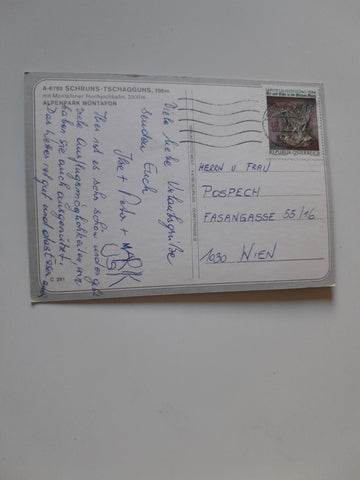 A-6780 SCHRUNS-TSCHAGGUNS,
mit Montafoner Hochjochbahn,
ALPENPARK MONTAFON
Viele liebe Urlaubsgrüße
senden Euch
Ilse + Peter +
MARK
Hier ist es sehr schön und es gibt
viele Ausflugsmöglichkeiten, wir
haben sie auch ausgenützt.
Das Wetter ist gut und
C 291
REPUBLIK ÖSTERREICH
HERRN U. FRAU
POSPECH
FASANGASSE 55/16
1030 WIEN